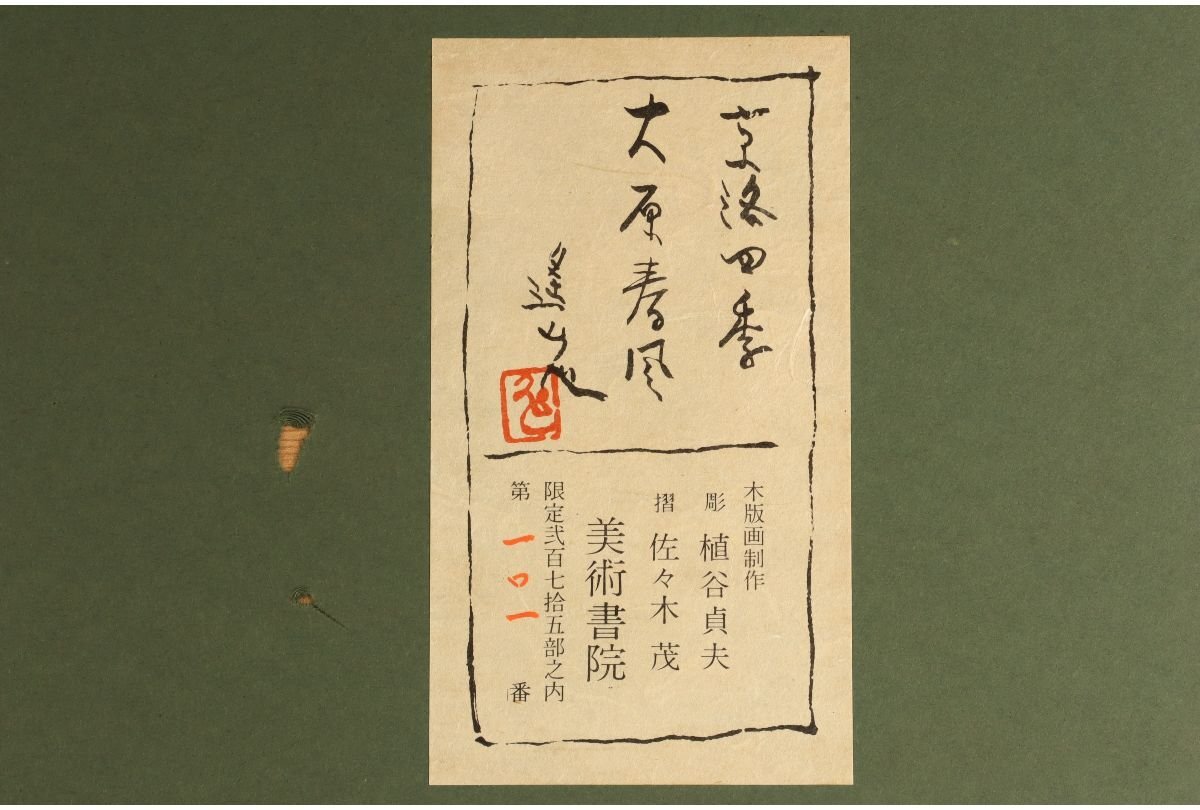 京洛四季
大原春風
木版画制作
彫 植谷貞夫
摺 佐々木 茂
美術書院
限定弐百七拾五部之内
第 一〇一 番